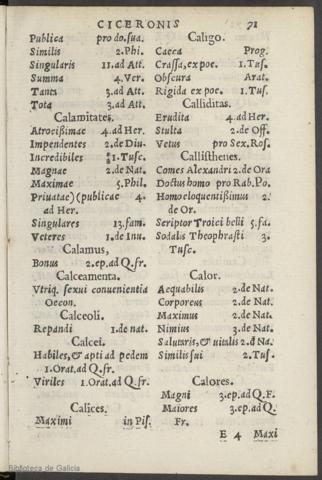 CICERONIS 71
Publica pro do. sua.
Similis 2. Phi.
Singularis 11. ad Att.
Summa 4. Ver.
Tanta 3. ad Att.
Tota 3. ad Att.
Calamitates.
Atrocißimae 4. ad Her.
Impendentes 2. de Diu.
Incredibiles 1. Tusc.
Magnae 2. de Nat.
Maximae 5. Phil.
Priuatae) (publicae 4.
ad Her.
Singulares 13. fam.
Veteres 1. de Inu.
Calamus,
Bonus 2. ep. ad Q. fr.
Calceamenta.
Vtriq. sexui conuenientia
Oecon.
Calceoli.
Repandi 1. de nat.
Calcei.
Habiles, & apti ad pedem
1. Orat. ad Q. fr.
Viriles 1. Orat. ad Q. fr.
Calices.
Maximi in Pis.
Caligo.
Caeca Prog.
Crassa, ex poe. 1. Tus.
Obscura Arat.
Rigida ex poe. 1. Tus.
Calliditas.
Erudita 4. ad Her.
Stulta 2. de Off.
Vetus pro Sex. Ros.
Callisthenes.
Comes Alexandri 2. de Ora
Doctus homo pro Rab. Po.
Homo eloquentißimus 2.
de Or.
Scriptor Troici belli 5. fa.
Sodalis Theophrasti 3.
Tusc.
Calor.
Aequabilis 2. de Nat.
Corporeus 2. de Nat.
Maximus 2. de Nat.
Nimius 3. de Nat.
Salutaris, & uitalis 2. d Na.
Similis sui 2. Tus.
Calores.
Magni 3. ep. ad Q. F.
Maiores 3. ep. ad Q.
Fr.
E 4 Maxi
Biblioteca de Galicia